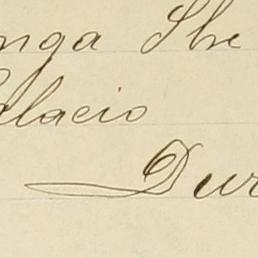 nga Sbe
alacio
Dur